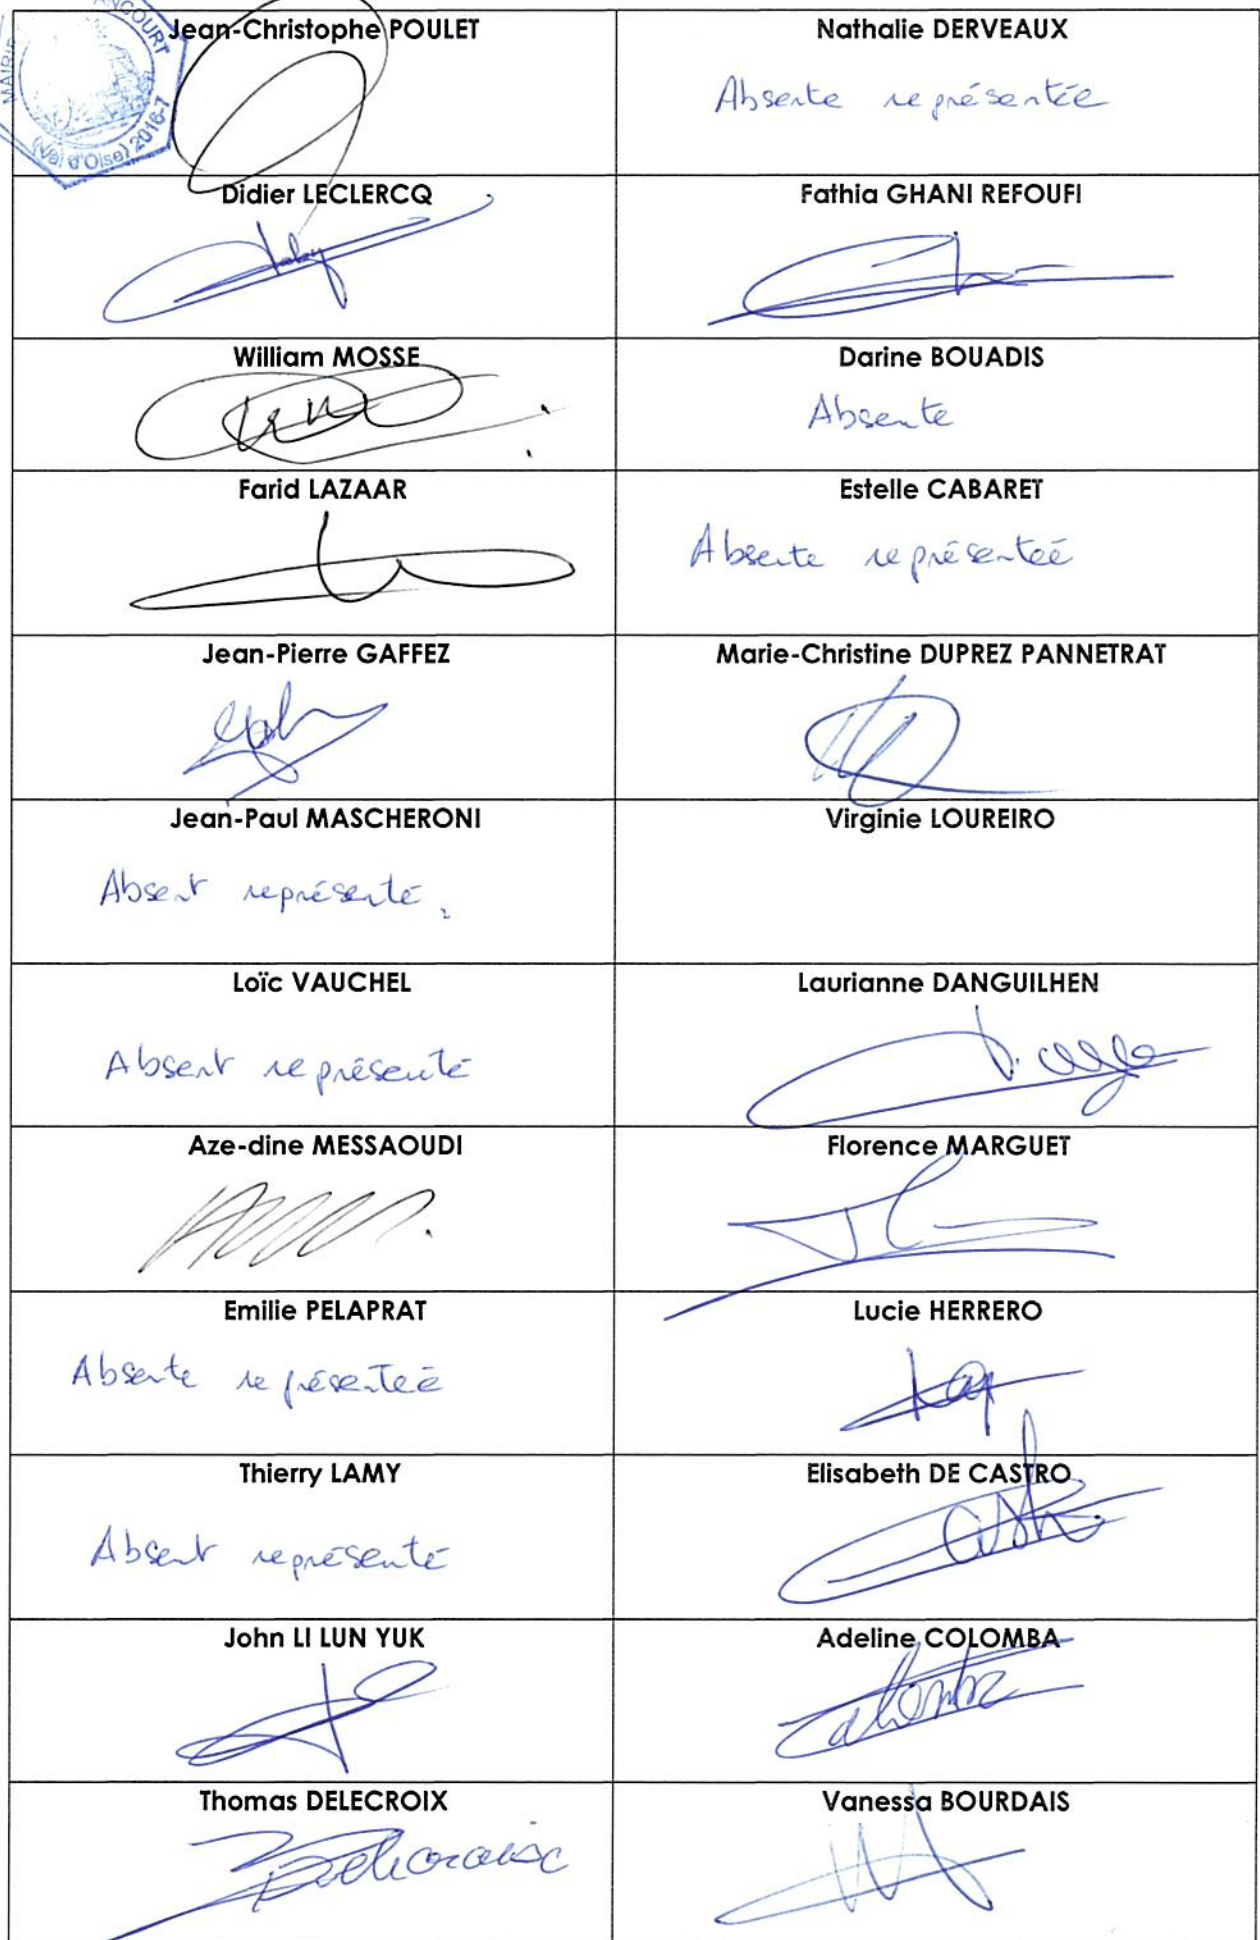 MAIRIE
(Val d'Oise) 2016-7
Jean-Christophe POULET
Nathalie DERVEAUX
Absente représentée
Didier LECLERCQ
Fathia GHANI REFOUFI
William MOSSE
Darine BOUADIS
Absente
Farid LAZAAR
Estelle CABARET
Absente représenteé
Jean-Pierre GAFFEZ
Marie-Christine DUPREZ PANNETRAT
Jean-Paul MASCHERONI
Absent représenté.
Virginie LOUREIRO
Loïc VAUCHEL
Absent représenté
Laurianne DANGUILHEN
Aze-dine MESSAOUDI
Florence MARGUET
Emilie PELAPRAT
Absente représenteé
Lucie HERRERO
Thierry LAMY
Absent représenté
Elisabeth DE CASTRO
John LI LUN YUK
Adeline COLOMBA
Thomas DELECROIX
Vanessa BOURDAIS